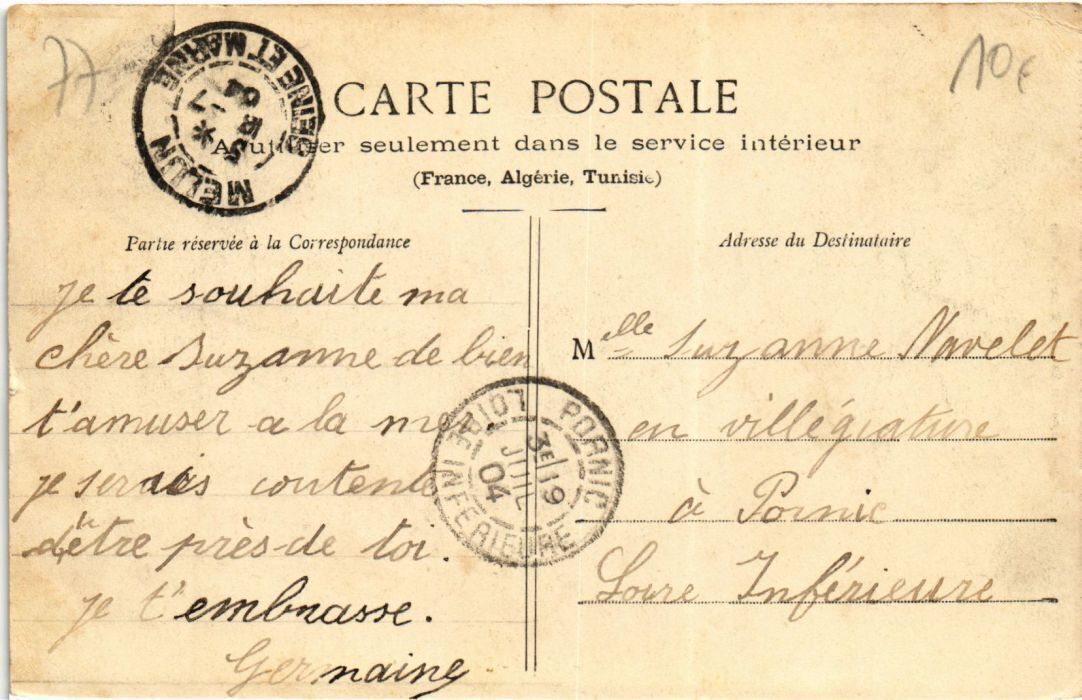 77
10€
MELUN SEINE ET MARNE
CARTE POSTALE
A utiliser seulement dans le service intérieur
(France, Algérie, Tunisie)
Partie réservée à la Correspondance
je te souhaite ma
chère Suzanne de bien
t'amuser a la mer.
je serais contente
d'être près de toi.
je t'embrasse.
Germaine
PORNIC LOIRE INFERIEURE
3E 19
JUIL
04
Adresse du Destinataire
Melle Suzanne Navelet
en villégiature
à Pornic
Loire Inférieure